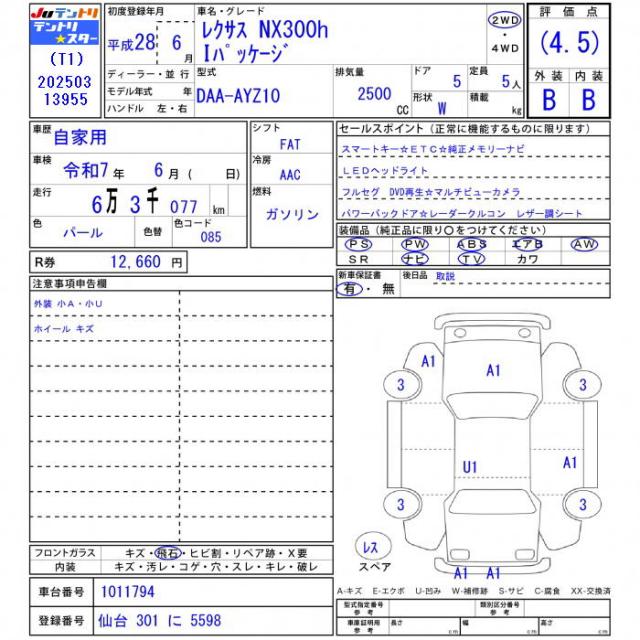 JUテントリ
テントリ★スター
(T1)
202503
13955
初度登録年月
平成28年 6月
ディーラー・並行
モデル年式 年
ハンドル 左・右
車名・グレード
レクサス NX300h
Iパッケージ
2WD
・
4WD
型式
DAA-AYZ10
排気量
2500
CC
ドア 5
形状 W
定員 5人
積載 kg
評価点
(4.5)
外装 内装
B B
車歴
自家用
車検
令和7年 6月( 日)
走行
6万3千077km
色
パール
色替
色コード
085
シフト
FAT
冷房
AAC
燃料
ガソリン
R券 12,660 円
セールスポイント(正常に機能するものに限ります)
スマートキー☆ETC☆純正メモリーナビ
LEDヘッドライト
フルセグ DVD再生☆マルチビューカメラ
パワーバックドア☆レーダークルコン レザー調シート
装備品(純正品に限り○をつけてください)
PS PW ABS エアB AW
SR ナビ TV カワ
新車保証書
有・無
後日品 取説
注意事項申告欄
外装 小A・小U
ホイール キズ
A1
A1
3
3
U1
A1
3
3
レス
スペア
A1 A1
フロントガラス キズ・飛石・ヒビ割・リペア跡・X要
内装 キズ・汚レ・コゲ・穴・スレ・キレ・破レ
A-キズ E-エクボ U-凹み W-補修跡 S-サビ C-腐食 XX-交換済
車台番号 1011794
登録番号 仙台 301 に 5598
型式指定番号
参考
類別区分番号
参考
車庫証明用
参考
長さ cm
幅 cm
高さ cm